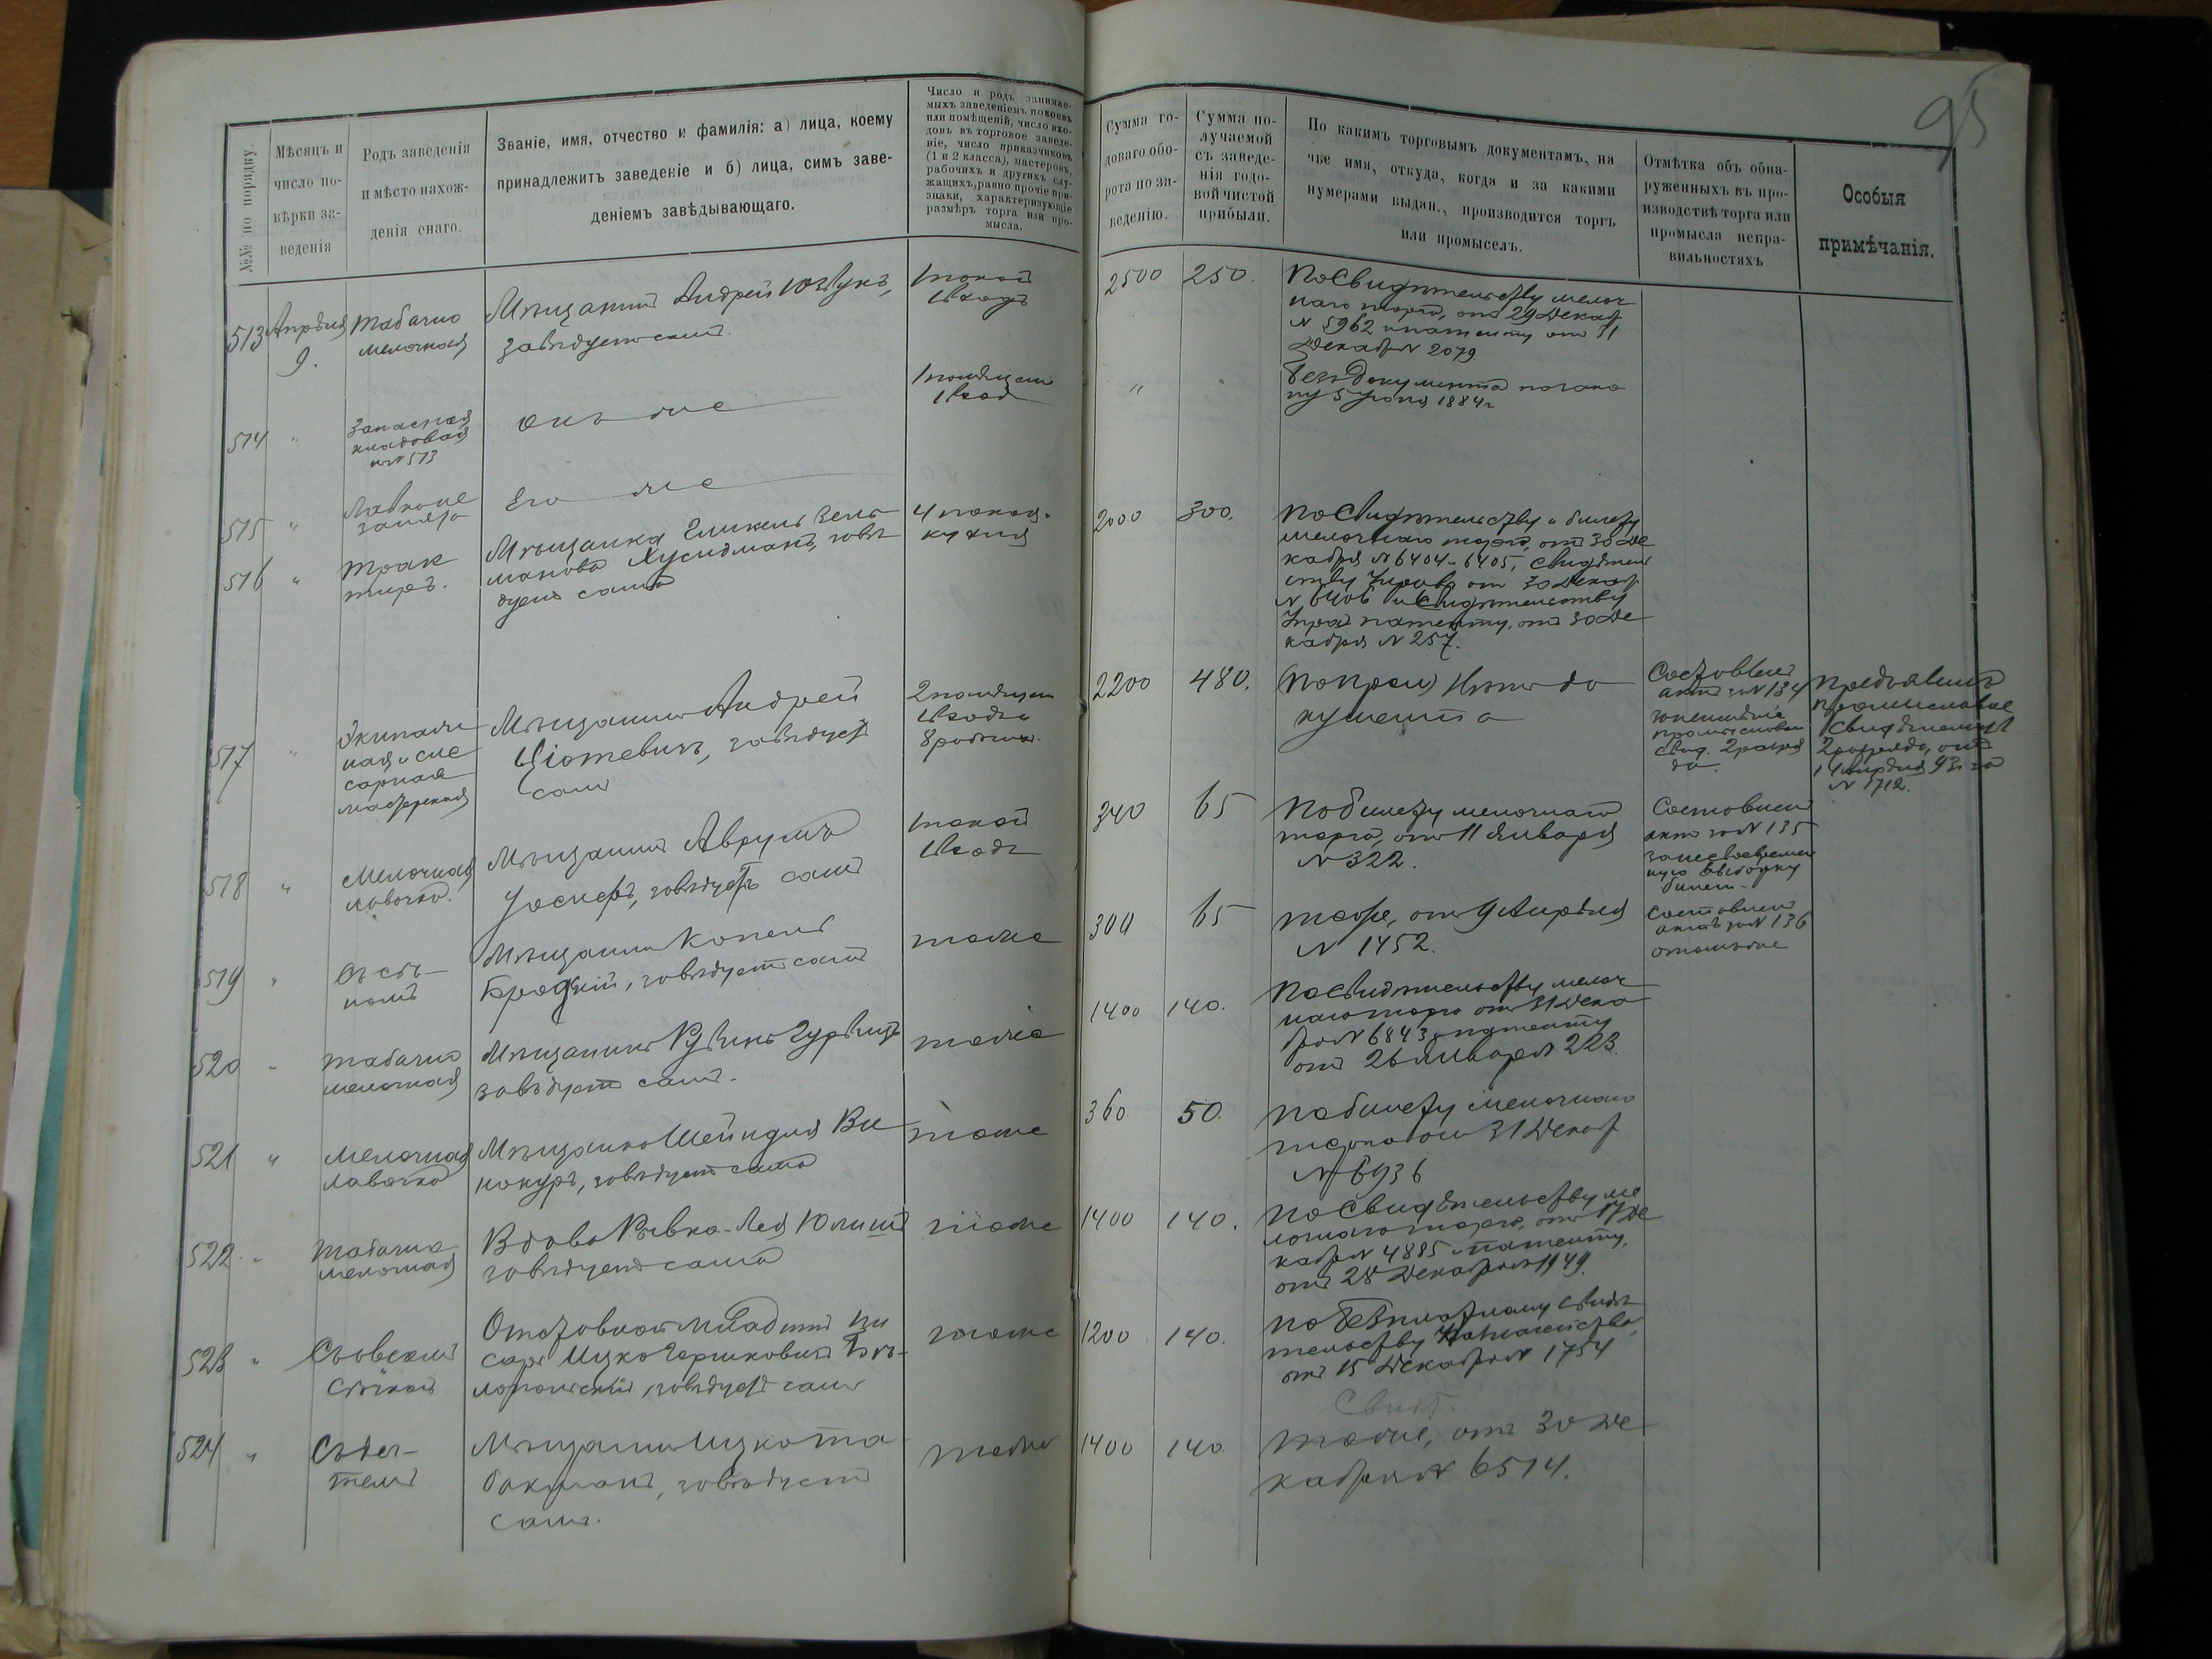 95
№№ по порядку.
Мѣсяцъ и
число по-
вѣрки за-
веденія
Родъ заведенія
и мѣсто нахож-
денія онаго.
Званіе, имя, отчество и фамилія: а) лица, коему
принадлежитъ заведеніе и б) лица, симъ заве-
деніемъ завѣдывающаго.
Число и родъ занимае-
мыхъ заведеніемъ покоевъ
или помѣщеній, число вхо-
довъ въ торговое заведе-
ніе, число приказчиковъ
(1 и 2 класса), мастеровъ,
рабочихъ и другихъ слу-
жащихъ, равно прочіе при-
знаки, характеризующіе
размѣръ торга или про-
мысла.
Сумма го-
доваго обо-
рота по за-
веденію.
Сумма по-
лучаемой
съ заведе-
нія годо-
вой чистой
прибыли.
По какимъ торговымъ документамъ, на
чье имя, откуда, когда и за какими
нумерами выдан., производится торгъ
или промыселъ.
Отмѣтка объ обна-
руженныхъ въ про-
изводствѣ торга или
промысла непра-
вильностяхъ.
Особыя
примѣчанія.
513
Апрѣля
9.
Табачно
мелочная
Мѣщанинъ Андрей
завѣдуетъ самъ.
1 покой
1 входъ
2500
250.
По свидѣтельству мелоч
наго торга, отъ 29 Декаб
N 5962 и патенту отъ 31
Декабр N 2079.
514
"
Запасная
кладовая
къ N 513
Онъ же
1 помѣщен
1 вход
"
"
Безъ документа по зако
ну 5 Іюня 1884 г
515
"
Лавка не
занята
Его же
516
"
Трак
тиръ.
Мѣщанка
завѣ
дуетъ сама
4 покоя
кухня
2000
300.
По свидѣтельству и билету
мелочнаго торга, отъ 30 Де
кабря N 6404 и 6405, свидѣтел
ству Управ отъ 30 Декаб
N 6406 и свидѣтельству
патенту, отъ 30 Де
кабря N 257.
517
"
Экипаж
ная и сле
сарная
мастерская
Мѣщанинъ Андрей
завѣдует
самъ
2 помѣщен
входа
8 рабочих.
2200
480.
до
кумента
Составлен
актъ за N 134
за неимѣніе
промысловаго
свид. 2 разря
да.
Предъявилъ
промысловое
свидѣтельст
2 разряда, отъ
14 апрѣля 93 г за
N 1712.
518
"
Мелочная
лавочка.
Мѣщанинъ Аврумъ
завѣдуетъ самъ
1 покой
1 входъ
340
65
По билету мелочнаго
торга, отъ 11 Января
N 322.
Составлен
актъ за N 135
за несвоевремен
ную выборку
билет.
519
"
Мѣщанинъ Копель
Бродскій, завѣдуетъ самъ
тоже
300
65
Тоже, отъ 9 Апрѣля
N 1452.
Составлен
актъ за N 136
520
"
Табачно
мелочная
Мѣщанинъ Рувинъ Гурвицъ
завѣдуетъ самъ.
тоже
1400
140.
По свидѣтельству мелоч
наго торга отъ 31 Дека
бря N 6843 и патенту
отъ 26 Января N 223.
521
"
Мелочная
лавочка
Мѣщанка Шейндля Ви
нокуръ, завѣдуетъ сама
тоже
360
50.
По билету мелочнаго
торга отъ 31 Декаб
N 6936
522
"
Табачно
мелочная
Вдова Ривка-Лея
завѣдуетъ сама
тоже
1400
140.
По свидѣтельству ме
лочнаго торга, отъ 17 Де
кабр N 4885 и патенту,
отъ 28 Декабря N 1949.
523
"
Отставной младшій пи
сарь Ицко Гершковичъ
завѣдует самъ
тоже
1200
140.
По безплатному свидѣ
тельству Казначейства,
отъ 15 Декабря N 1754
Свид.
524
"
Мѣщанинъ Ицко Та
бакманъ, завѣдуетъ
самъ.
тоже
1400
140.
Тоже, отъ 30 Де
кабря N 6514.